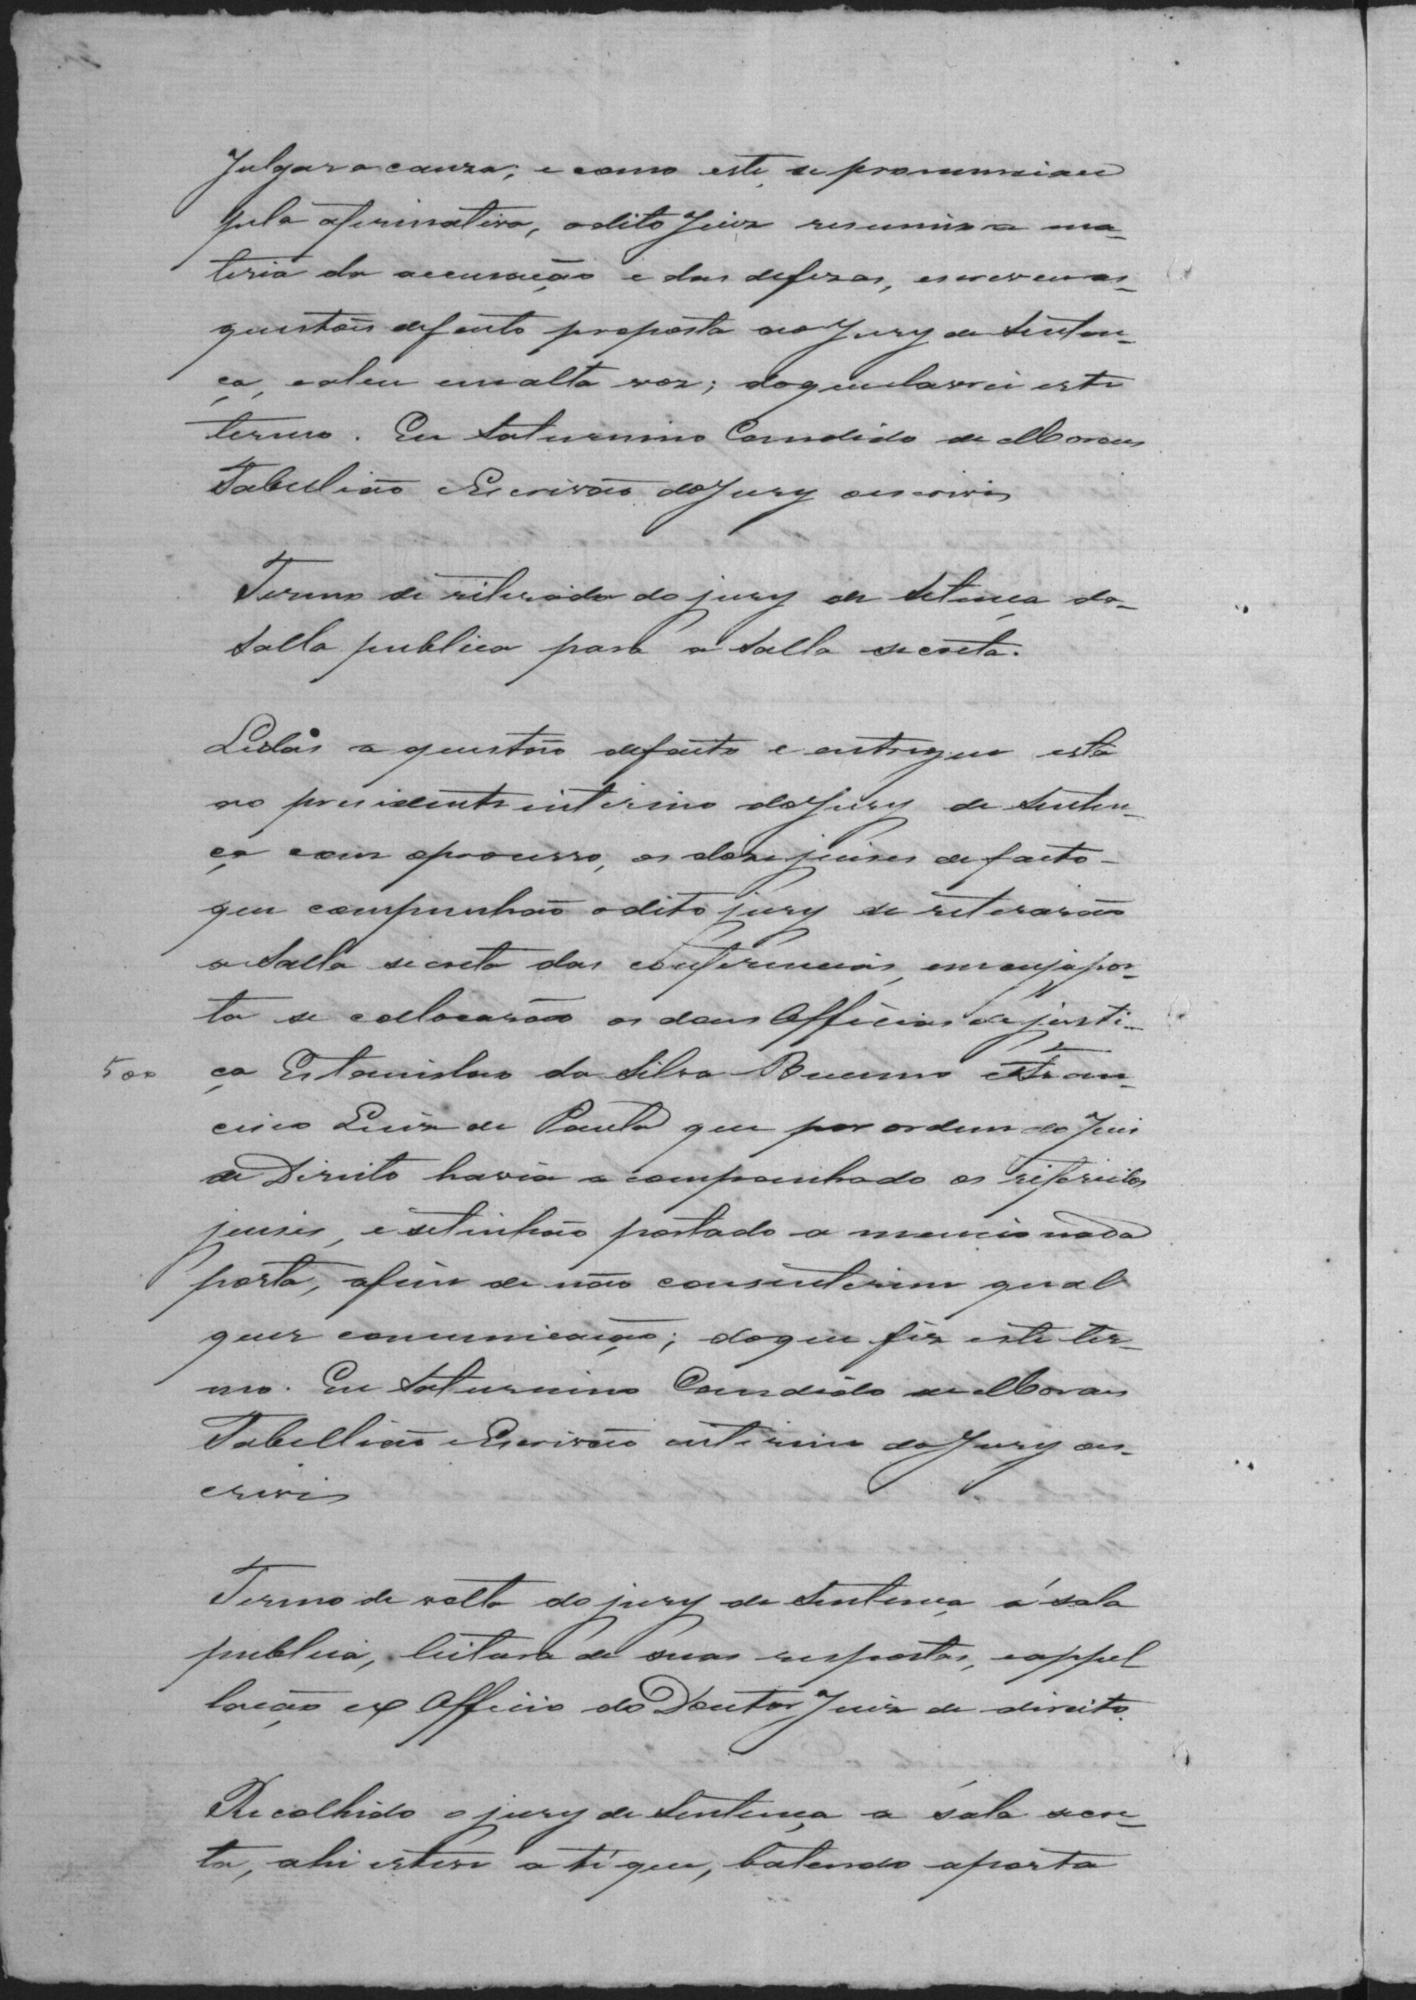 Julgar a cauza; e como este se pronunciau
pela afirmativa, o dito Juiz resumio a ma-
teria da accusação e das defezas, escreveu as
questões de facto proposta ao Jury de Senten-
ça, e a leu em alta voz; do que lavrei este
termo. Eu Saturnino Candido de Moraes
Tabelião Escrivão do Jury escrivi
Termo de riterada do jury de Setença da
Salla publica para a Salla secreta.
Lidas a questão de facto e entregue esta
ao presidente interino do Jury de Senten-
ça com o processo, os doze juises de facto
que compunhão o dito jury se reterarão
a Salla secreta das conferencias, em cuja por-
ta se collocarão os dous Officiaes de justi-
500 ça Estanislao da Silva Bueno e Fran-
cisco Luiz de Paula que por ordem do Juis
de Direito havia acompanhado os referidos
juises, e se tinhão postado a mencionada
porta, afim de não consinterem qual
quer comunicação; do que fiz este ter-
mo. Eu Saturnino Candido de Moraes
Tabellião Escrivão interino do Jury es-
crivi
Termo de volta do jury de Sentença á sala
publica, leitura de suas respostas, e appel
lação ex Officio do Doutor Juiz de direito.
Recolhido o jury de Sentença a sala secre-
ta, ahi esteve a té que, batendo a porta